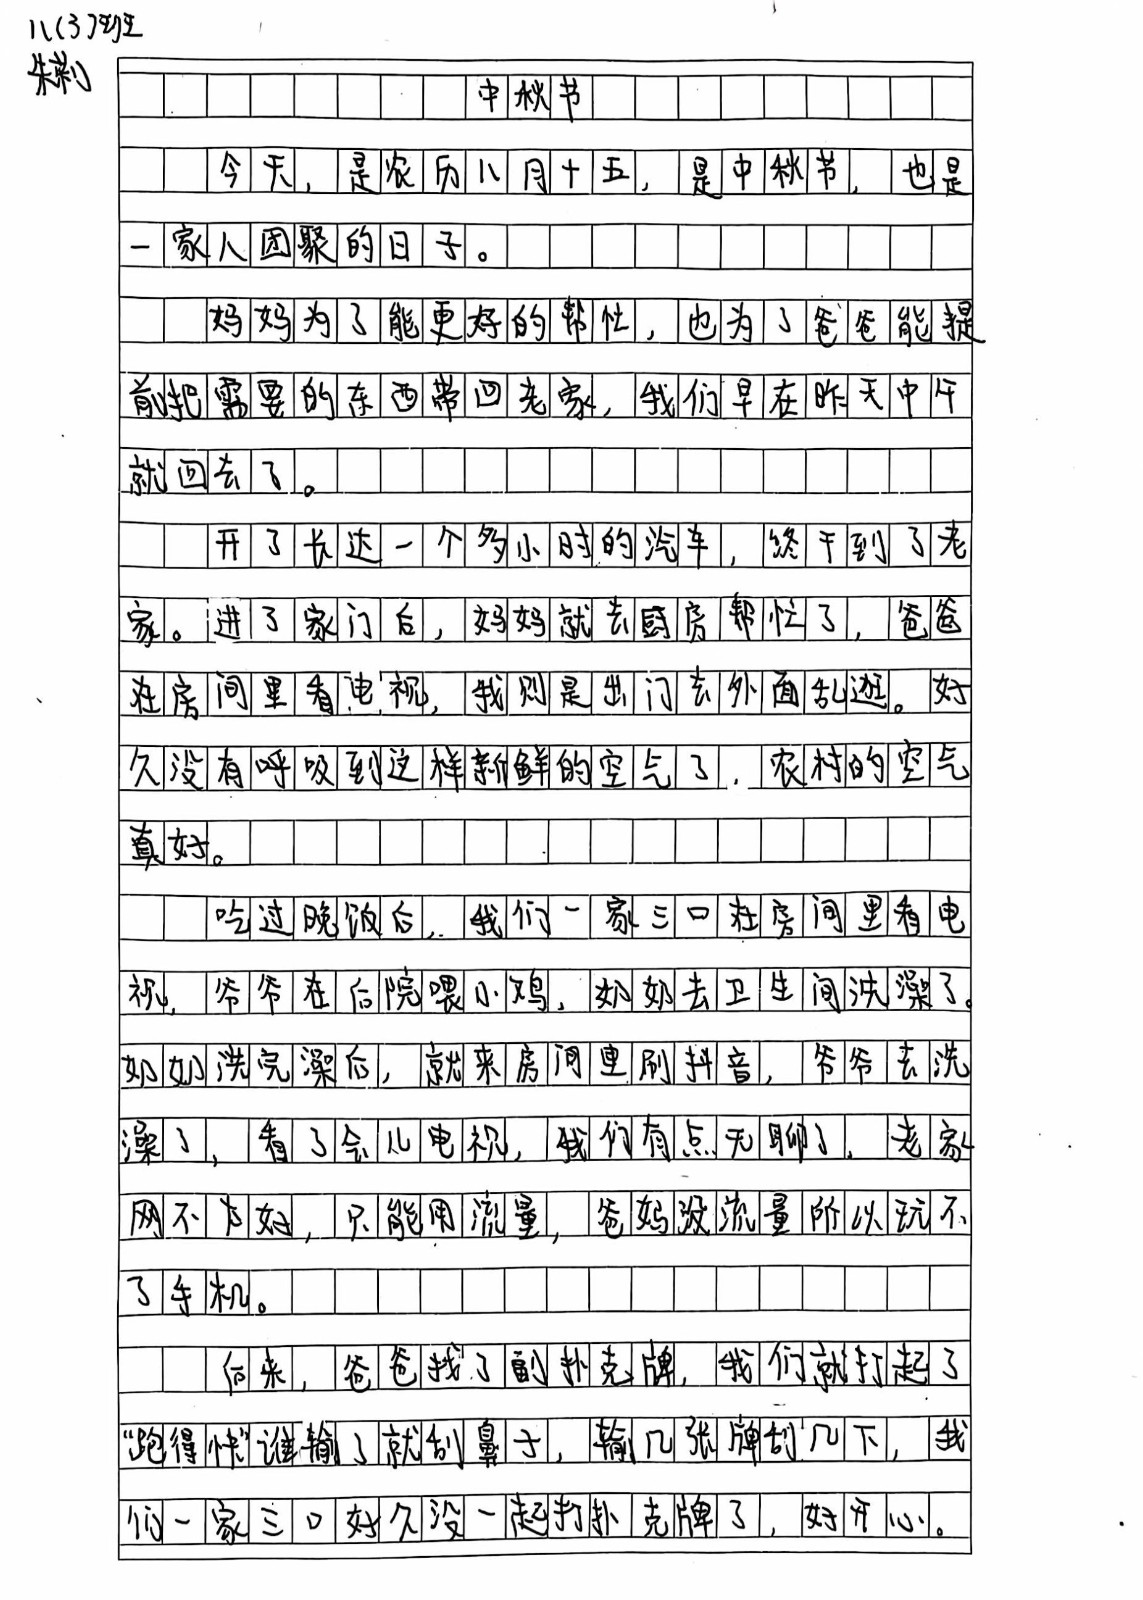 八(3)班
朱莉
中秋节
今天，是农历八月十五，是中秋节，也是
一家人团聚的日子。
妈妈为了能更好的帮忙，也为了爸爸能提
前把需要的东西带回老家，我们早在昨天中午
就回去了。
开了长达一个多小时的汽车，终于到了老
家。进了家门后，妈妈就去厨房帮忙了，爸爸
在房间里看电视，我则是出门去外面乱逛。好
久没有呼吸到这样新鲜的空气了，农村的空气
真好。
吃过晚饭后，我们一家三口在房间里看电
视，爷爷在后院喂小鸡，奶奶去卫生间洗澡了。
奶奶洗完澡后，就来房间里刷抖音，爷爷去洗
澡了，看了会儿电视，我们有点无聊了，老家
网不太好，只能用流量，爸妈没流量所以玩不
了手机。
后来，爸爸找了副扑克牌，我们就打起了
“跑得快”谁输了就刮鼻子，输几张牌刮几下，我
们一家三口好久没一起打扑克牌了，好开心。